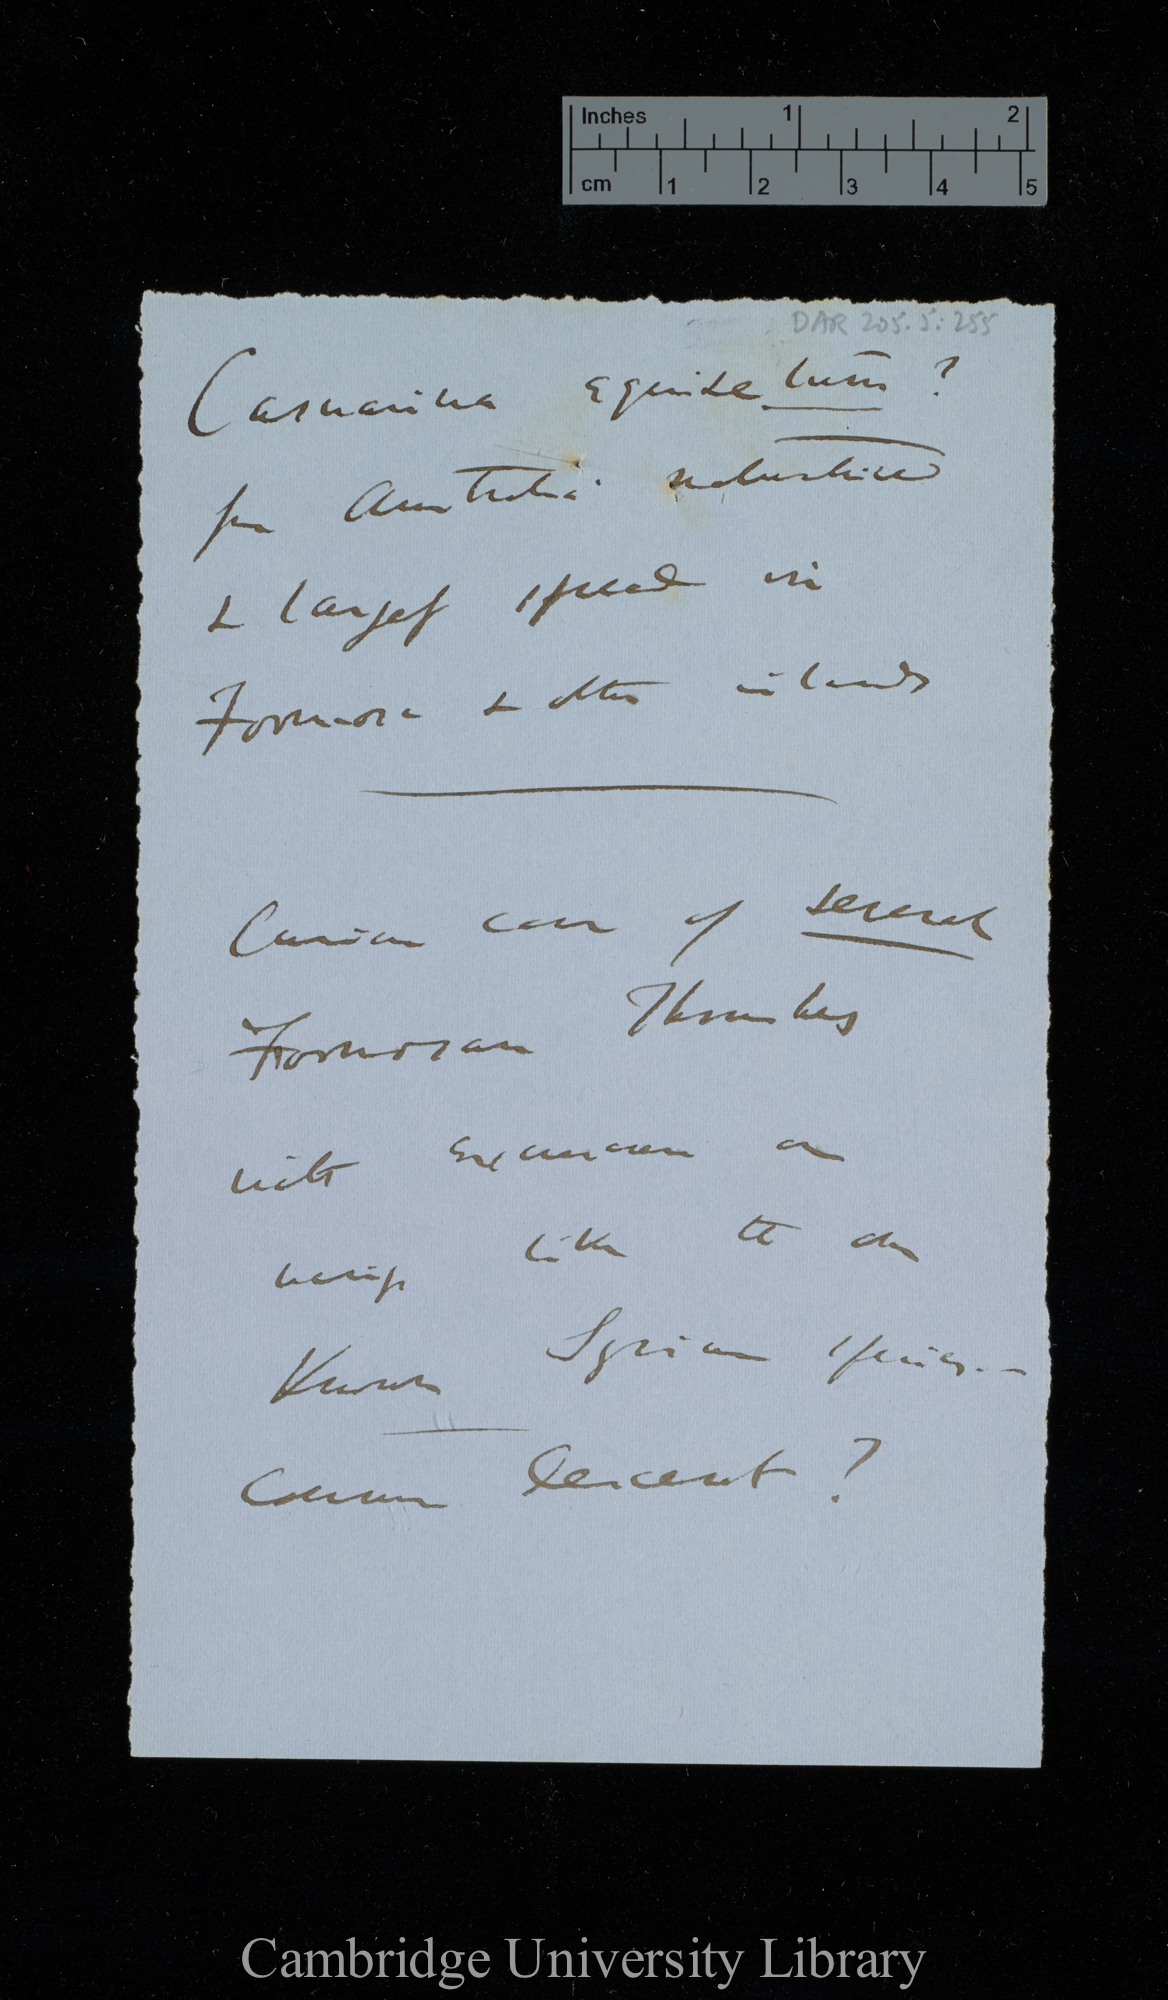 Inches 1 2
cm 1 2 3 4 5
DAR 205.5:255
Casuarina equisetum?
from Australia naturalised
& largely spread in
Formosa & other islands
Curious case of several
Formosan Thrushes
with on
wings like the one
Known Syrian species.—
Common descent?
Cambridge University Library